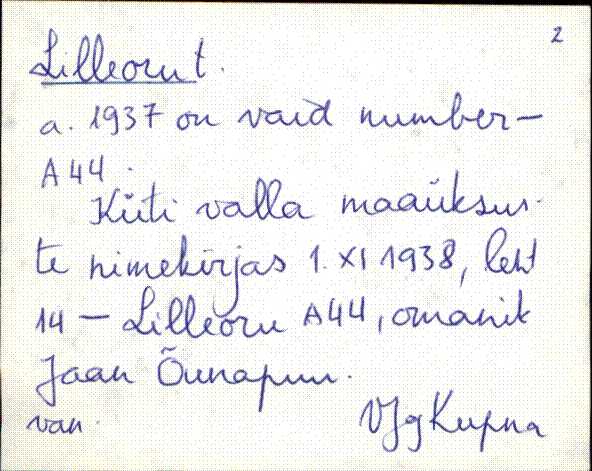 2
Lilleoru t.
a. 1937 on vaid number –
A44.
Küti valla maaüksus-
te nimekirjas 1. XI 1938, leht
14 – Lilleoru A44, omanik
Jaan Õunapuu.
van. VJg Kupna